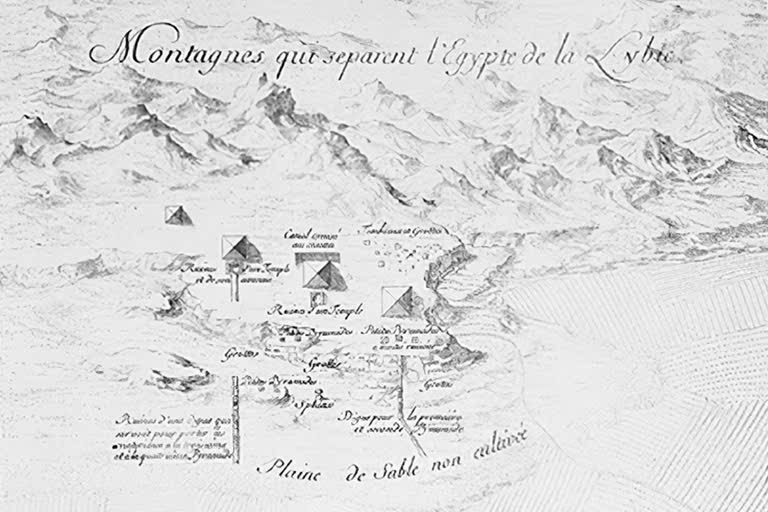 Montagnes qui separent l'Egypte de la Lybie.
Canal
Tombeaux et Grottes
Ruines d'un Temple
et de son
Ruines d'un Temple
Petites Pyramides
Petites Pyramides
Grottes
Grottes
Grottes
Petites Pyramides
Sphinx
Ruines d'une
servoit pour porter les
a la troisieme
et a la quatrieme Pyramide
Digue pour la premiere
et seconde Pyramide
Plaine de Sable non cultivée